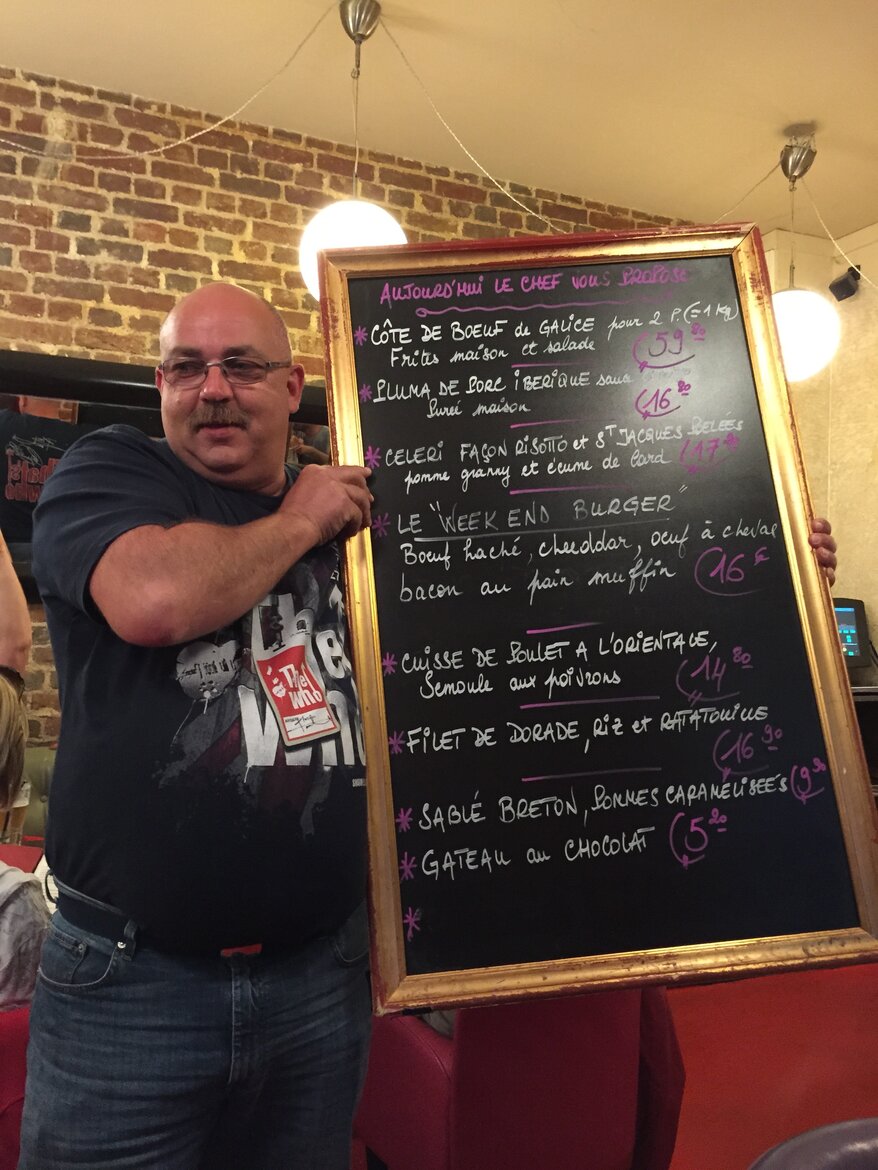 AUJOURD'HUI LE CHEF VOUS PROPOSE
* CÔTE DE BOEUF de GALICE pour 2 P (= 1 kg)
Frites maison et salade 59 80
* PLUMA DE PORC IBERIQUE
Pureé maison 16 80
* CELERI FAÇON RISOTTO et ST JACQUES POELEES
pomme granny et écume de Lard 17 80
* LE "WEEK END BURGER"
Boeuf haché, cheddar, oeuf à cheval
bacon au pain muffin 16 €
* CUISSE DE POULET A L'ORIENTALE,
Semoule aux poivrons 14 80
* FILET DE DORADE, RIZ et RATATOUILLE
16 90
* SABLÉ BRETON, POMMES CARAMELISEÉS 9
* GATEAU au CHOCOLAT 5 20
*
The Who
The
Who